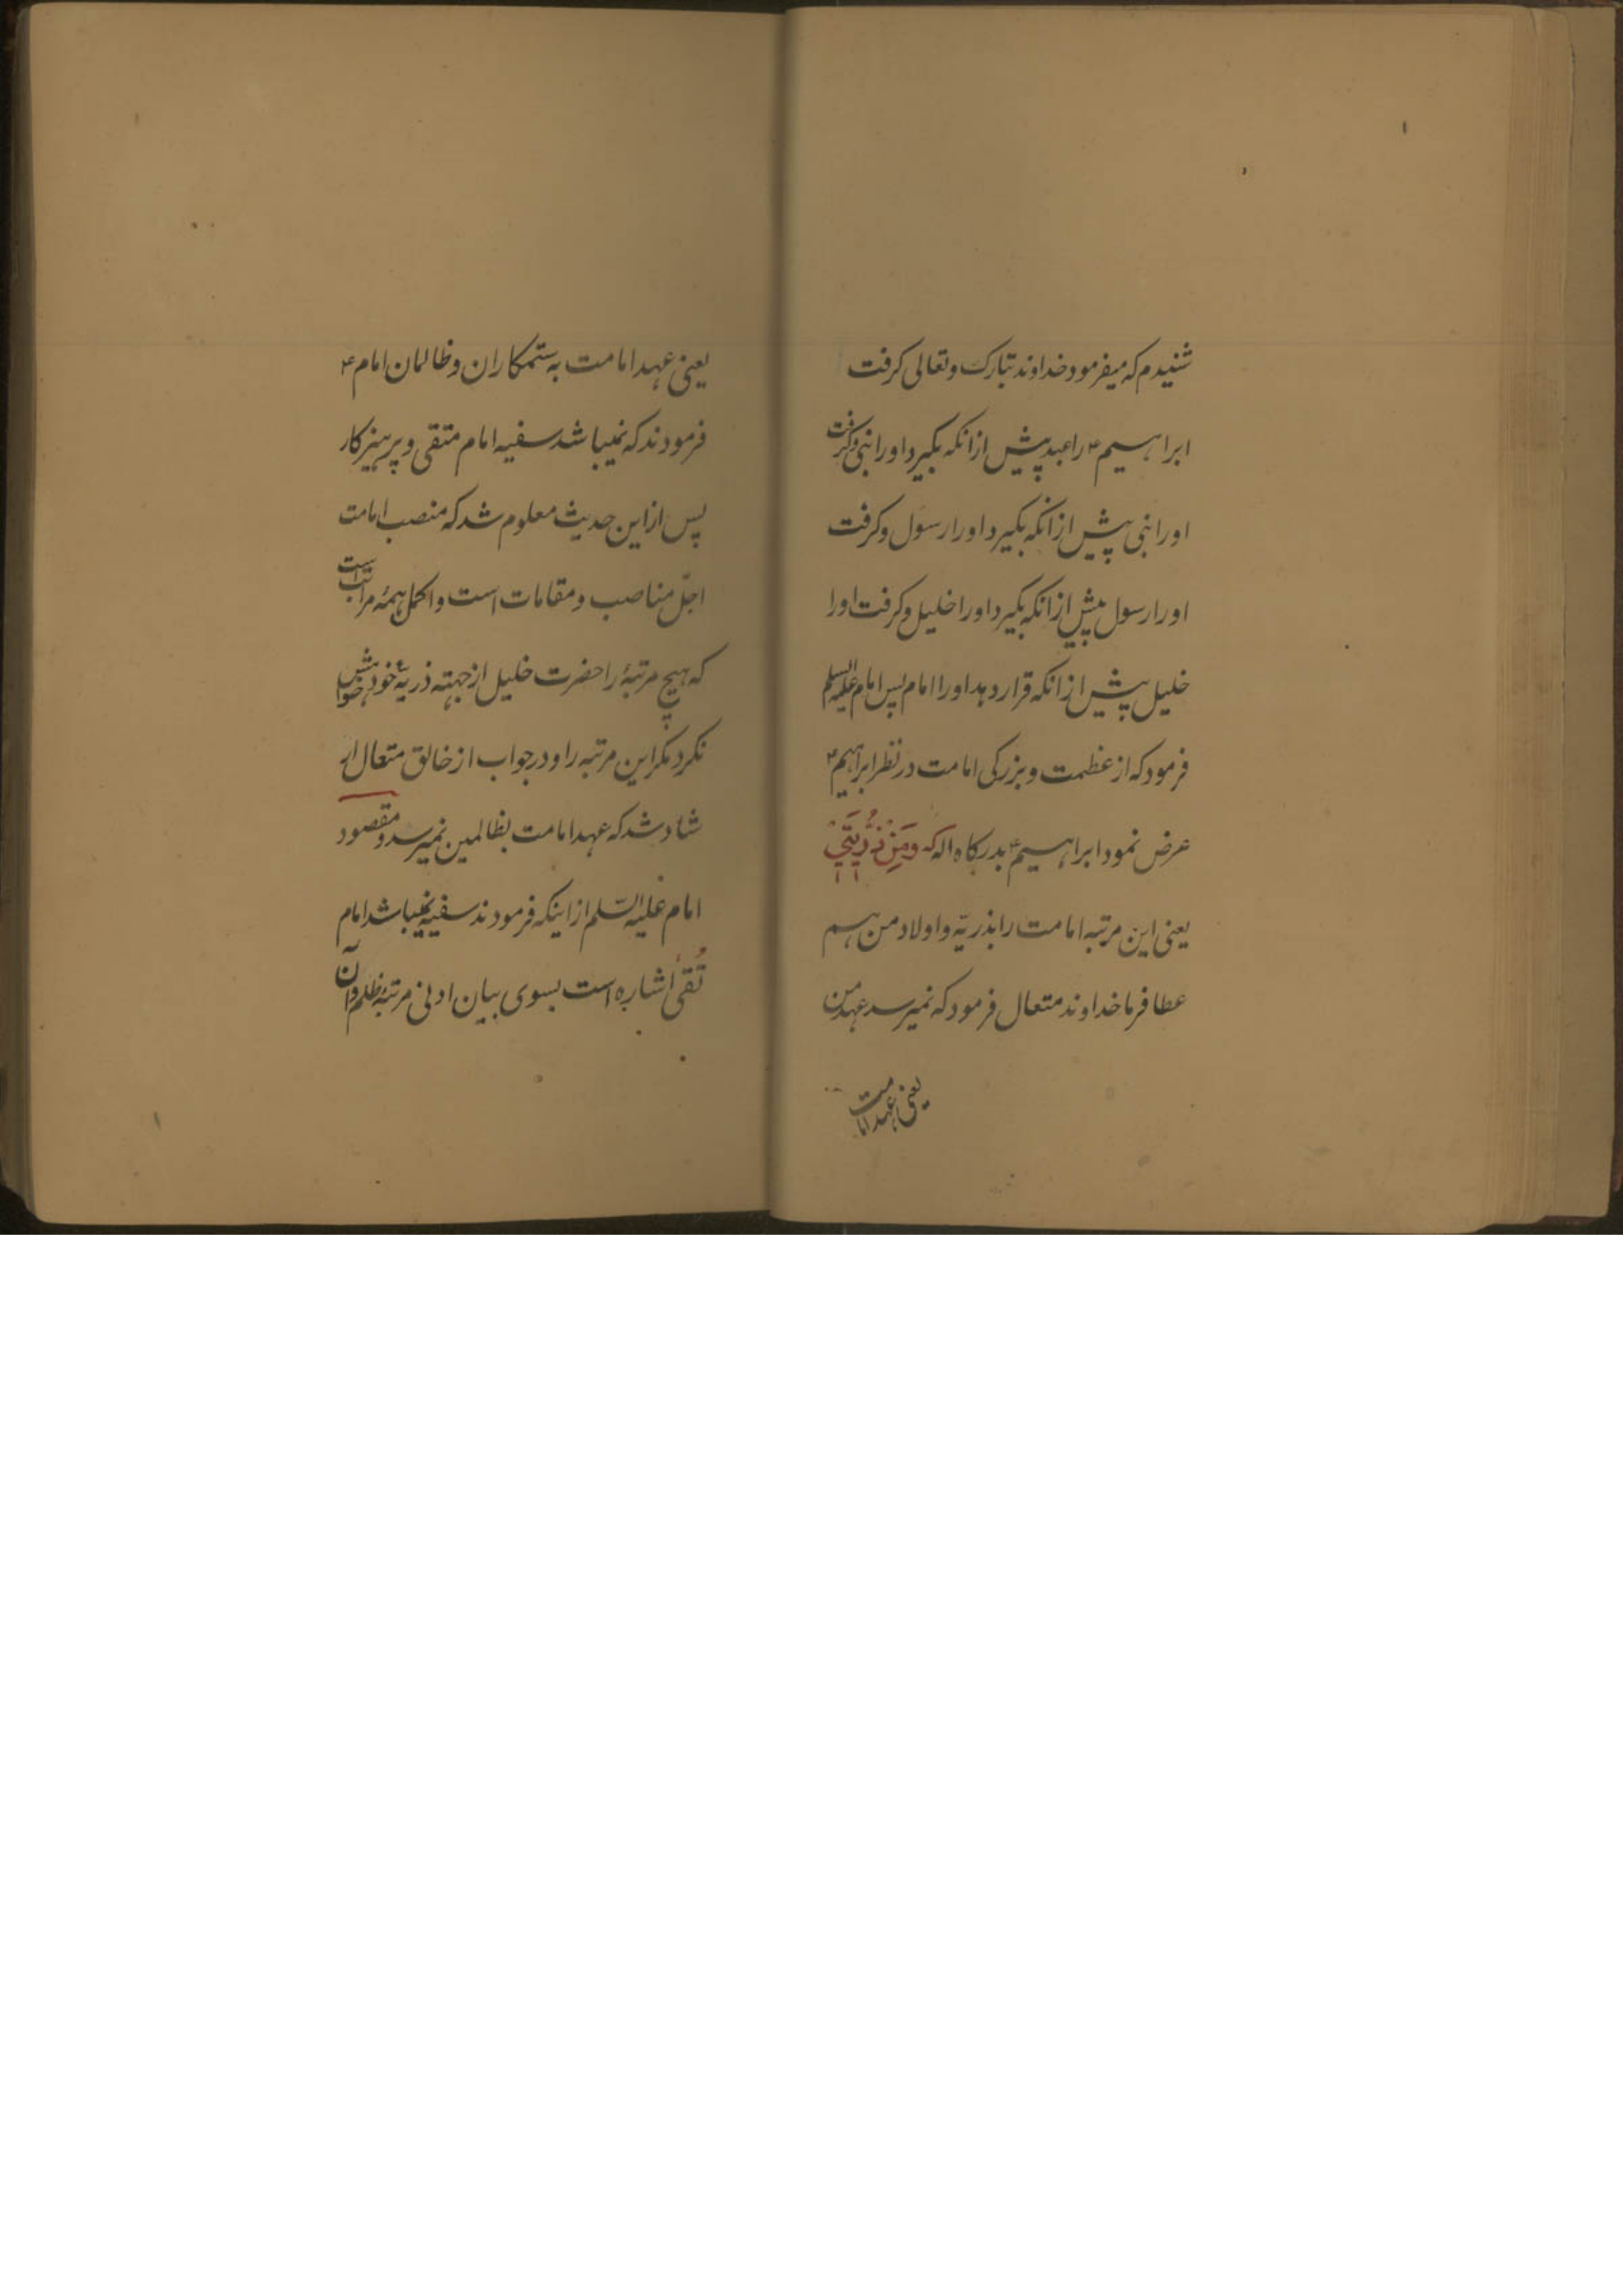 شنیدم که میفرمود خداوند تبارک و تعالی کرفت
ابراهیم ع را عبد پیش از انکه بکیرد او را نبی و کرفت
او را نبی پیش از انکه بکیرد او را رسول و کرفت
او را رسول پیش از انکه بکیرد او را خلیل و کرفت او را
خلیل پیش از انکه قرار دهد او را امام پس امام علیه السلم
فرمود که از عظمت و بزرکی امامت در نظر ابراهیم ع
عرض نمود ابراهیم ع بدرکاه اله که وَمِنْ ذُرِّیَّتِیْ
یعنی این مرتبه امامت را بذریّه و اولاد من هم
عطا فرما خداوند متعال فرمود که نمیرسد عهد من
یعنی عهد امامت
یعنی عهد امامت به ستمکاران و ظالمان امام ع
فرمودند که نمیباشد سفیه امام متقی و پرهیزکار
پس از این حدیث معلوم شد که منصب امامت
اجلّ مناصب و مقامات است و اکمل همهٔ مراتب است
که هیچ مرتبهٔ را حضرت خلیل از جهته ذریهٔ خود خواهش
نکرد مکر این مرتبه را و در جواب از خالق متعال ار
شاد شد که عهد امامت بظالمین نمیرسد و مقصود
امام علیه السّلم از اینکه فرمودند سفیه نمیباشد امام
تُقیٰ اشاره است بسوی بیان ادنی مرتبهٔ ظلم و آن